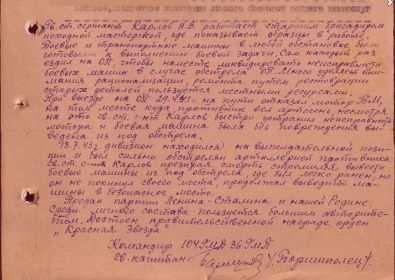 Гв. ст. сержант Карлов Н.В. работает старшим бригадиром
походной мастерской, где показывает образцы в работе.
Боевые и транспортные машины в любой обстановке были
готовы к выполнению боевой задачи. Сам каждый раз
ездил на ОП, чтобы на месте ликвидировать неисправности
боевых машин в случае обстрела ОП. Много уделяет вни-
мания рационализации ремонта, путем реставрации
старых деталей пользуется местными ресурсами.
При выезде на ОП на пути отказал мотор БМ,
на том месте куда противник вел артогонь несмотря
на это гв. ст. с-нт Карлов быстро устранил неисправность
мотора и боевая машина была без повреждения вы-
ведена из под обстрела.
13.7.43 г. дивизион находился на выжидательной пози-
ции и был сильно обстрелян артиллерией противника
Гв. ст. с-нт Карлов презирая смерть вывозит
боевые машины из под обстрела, где был легко ранен, но
он не покинул своего места, продолжал выводить ма-
шины в безопасное место.
Предан партии Ленина-Сталина и нашей Родине.
Среди личного состава пользуется большим авторите-
том. Достоен правительственной награде орден
"Красная Звезда"
Командир
гв. капитан